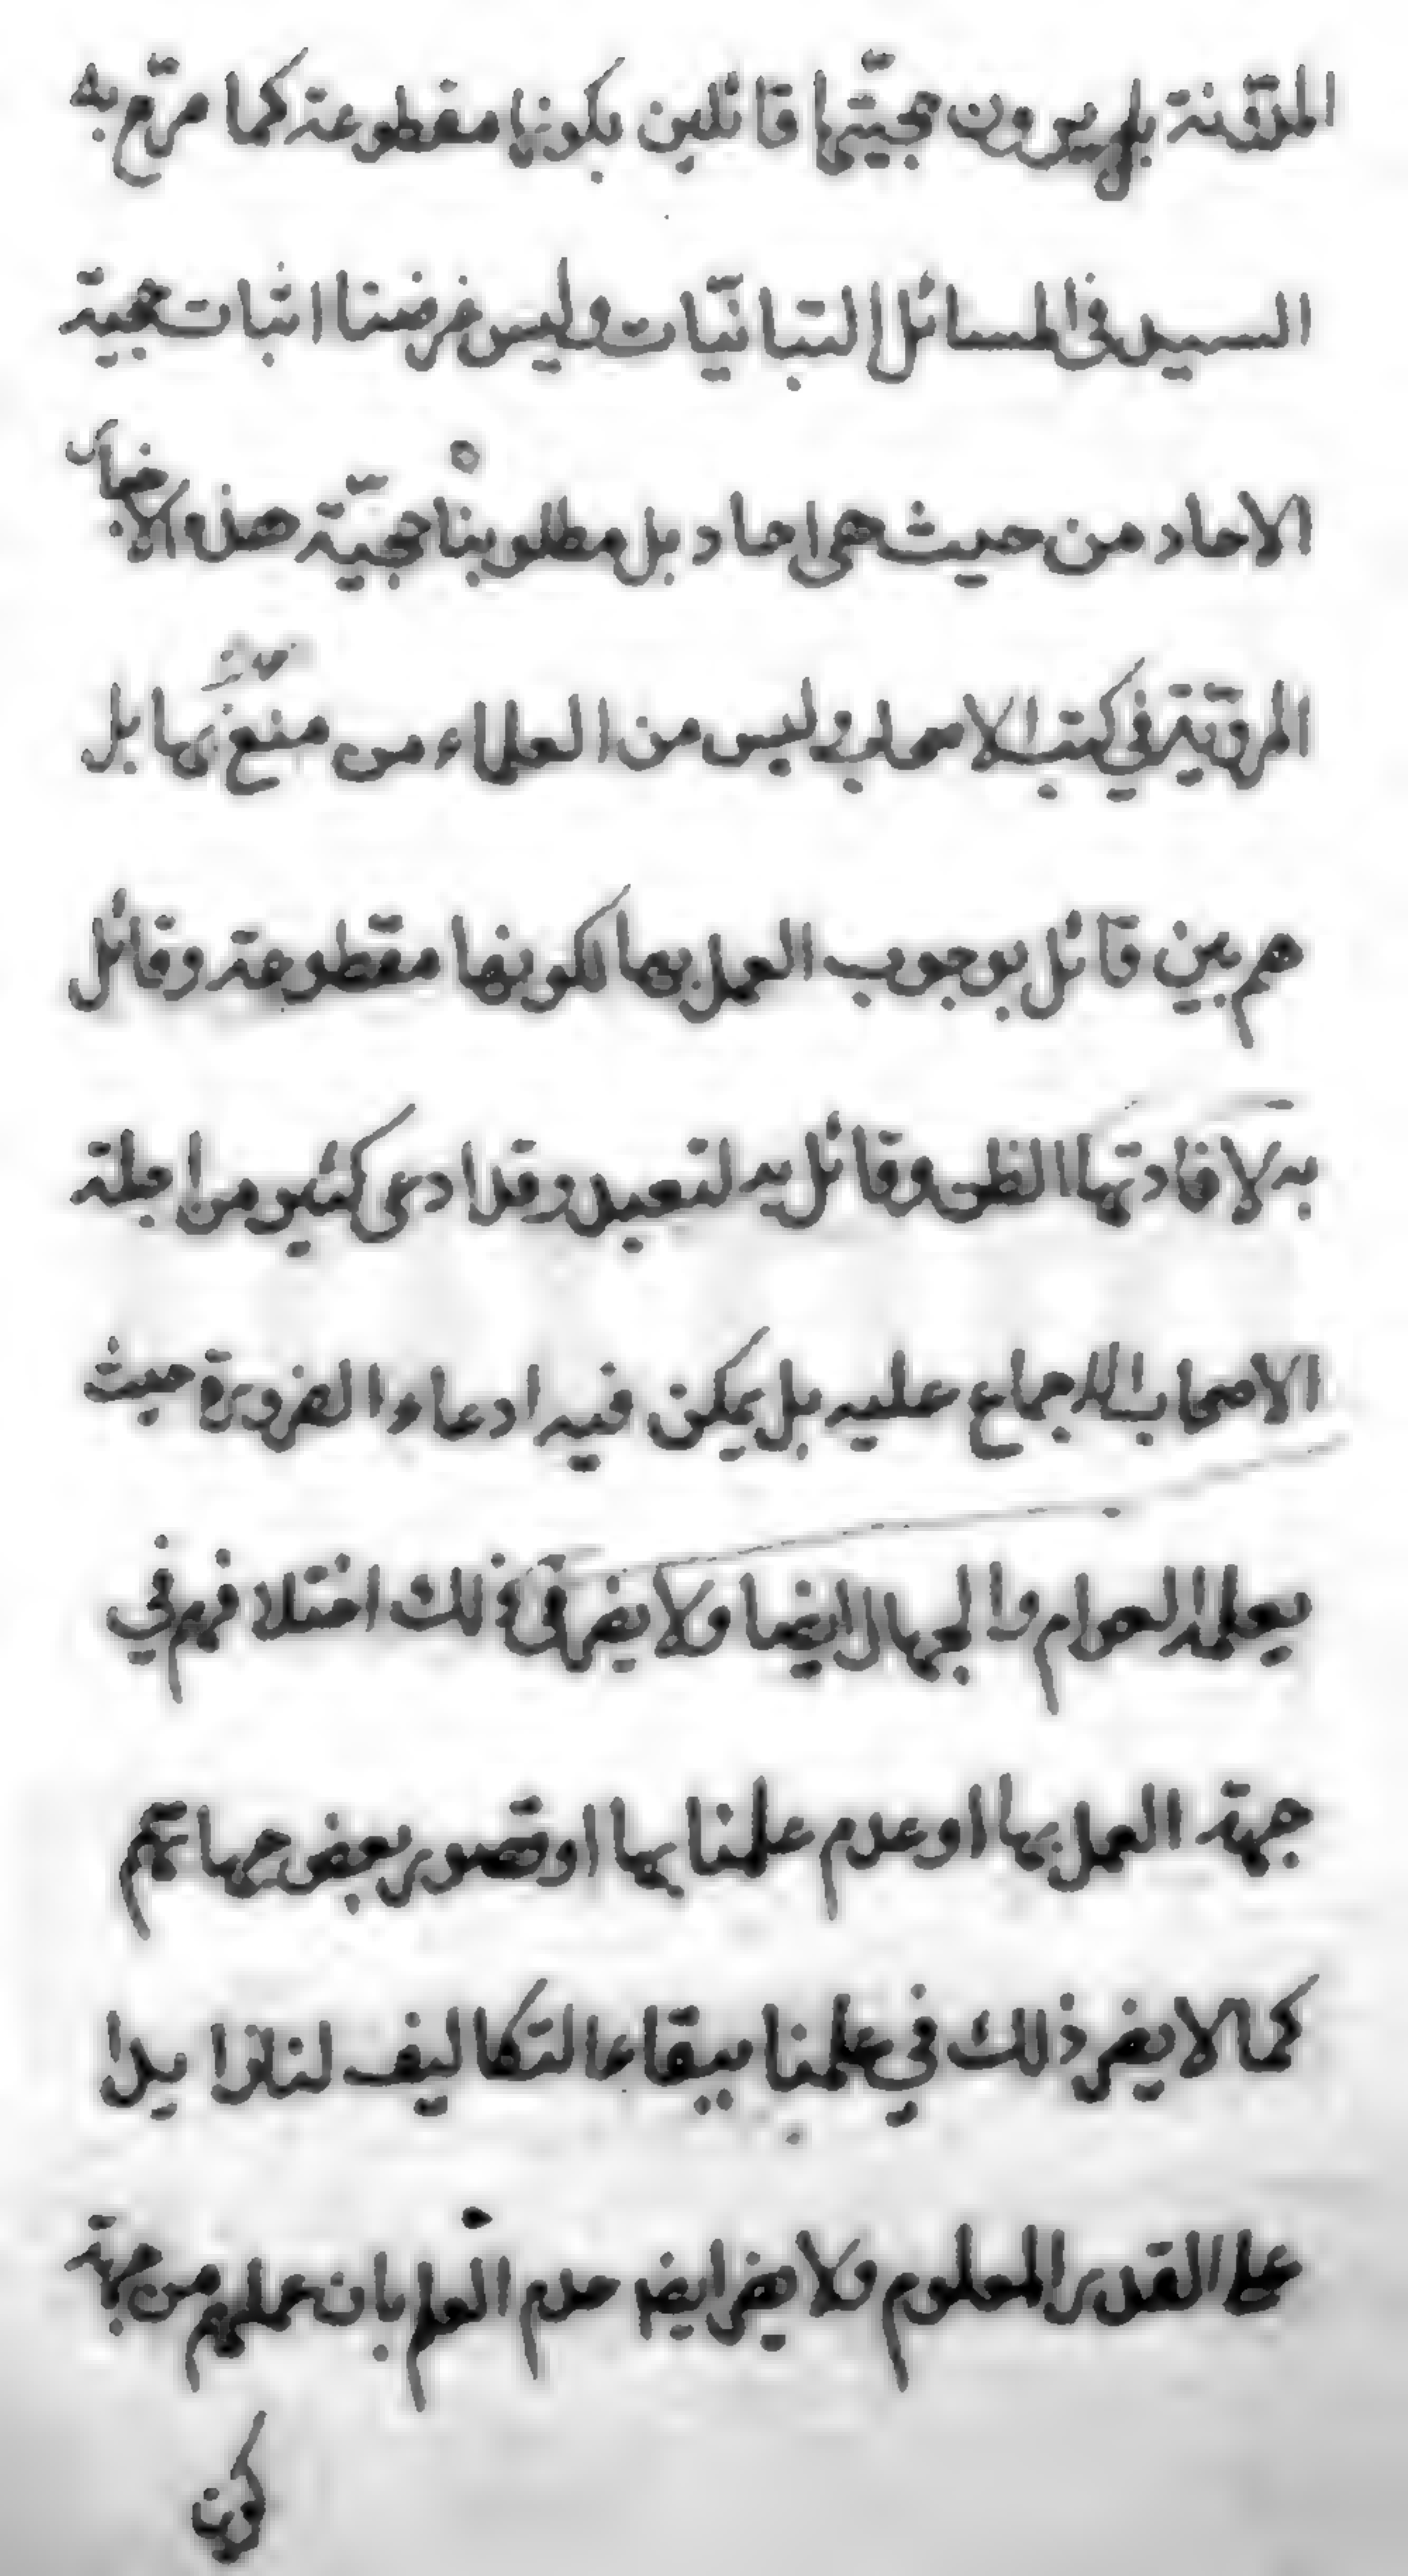 المتقنة بل يرون حجيّتها قائلين بكونها مقطوعة كما صرّح به
السيد في المسائل التبانيّات وليس غرضنا اثبات حجية
الاحاد من حيث هي احاد بل مطلوبنا حجيّة هذه الاخبار
المرويّة في كتب الاصحاب وليس من العلماء من منع بل
هم بين قائل بوجوب العمل بها لكونها مقطوعة وقائل
به لافادتها الظن وقائل به لتعبد وقد ادعى كثير من اجلة
الاصحاب الاجماع عليه بل يمكن فيه ادعاء الضرورة حيث
يعلمه العوام والجهال ايضا ولا يضر في ذلك اختلافهم في
جهة العمل بها او عدم علمنا بها او قصور بعض جهاتهم
كما لا يضر ذلك في علمنا ببقاء التكاليف لنا زايدا
على القدر المعلوم ولا يضر ايضا عدم العلم بان عملهم من جهة
كون